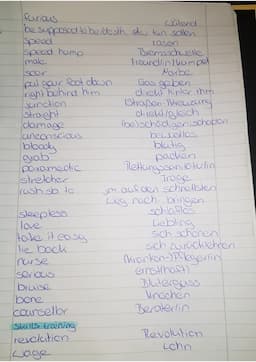 furious wütend
be supposed to be/do sth. etw. tun sollen
speed rasen
speed hump Bremsschwelle
mate Freund(in)/Kumpel
scar Narbe
put your foot down Gas geben
right behind him direkt hinter ihm
junction (Straßen-)Kreuzung
straight direkt/gleich
damage (be)schädigen/schaden
unconscious bewusstlos
bloody blutig
grab packen
paramedic Rettungssanitäter/in
stretcher Trage
rush sb to jn auf dem schnellsten
Weg nach bringen
sleepless schlaflos
love Liebling
take it easy sich schonen
lie back sich zurücklehnen
nurse (Kranken-)Pfleger/in
serious ernst(haft)
bruise Bluterguss
bone Knochen
counsellor Berater/in
skills training
revolution Revolution
wage Lohn